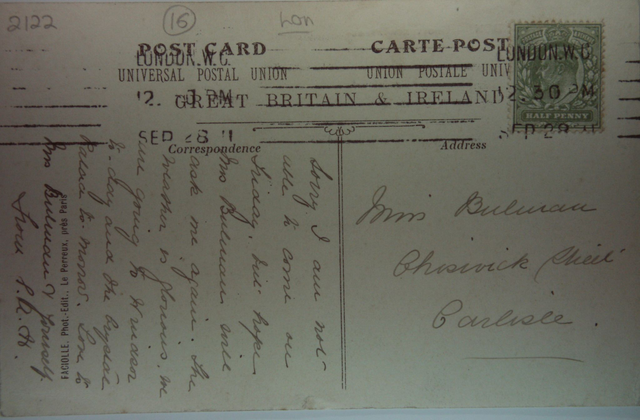 2122
16
Lon
POST CARD
CARTE-POST
LONDON.W.C.
LONDON.W.C.
UNIVERSAL POSTAL UNION
UNION POSTALE UNIV
12. PM
12.30 PM
GREAT BRITAIN & IRELAND
HALF PENNY
SEP 28 11
SEP 28 11
Correspondence
Address
Sorry I am not
able to come on
Friday, but hope
Miss Bulman will
ask me again. The
weather is glorious. We
are going to Windsor
to-day and the Crystal
Palace to morrow. Love to
Miss Bulman & yourself
from
FACIOLLE. Phot.-Edit.. Le Perreux, près Paris
Miss Bulman
Chiswick Street
Carlisle.